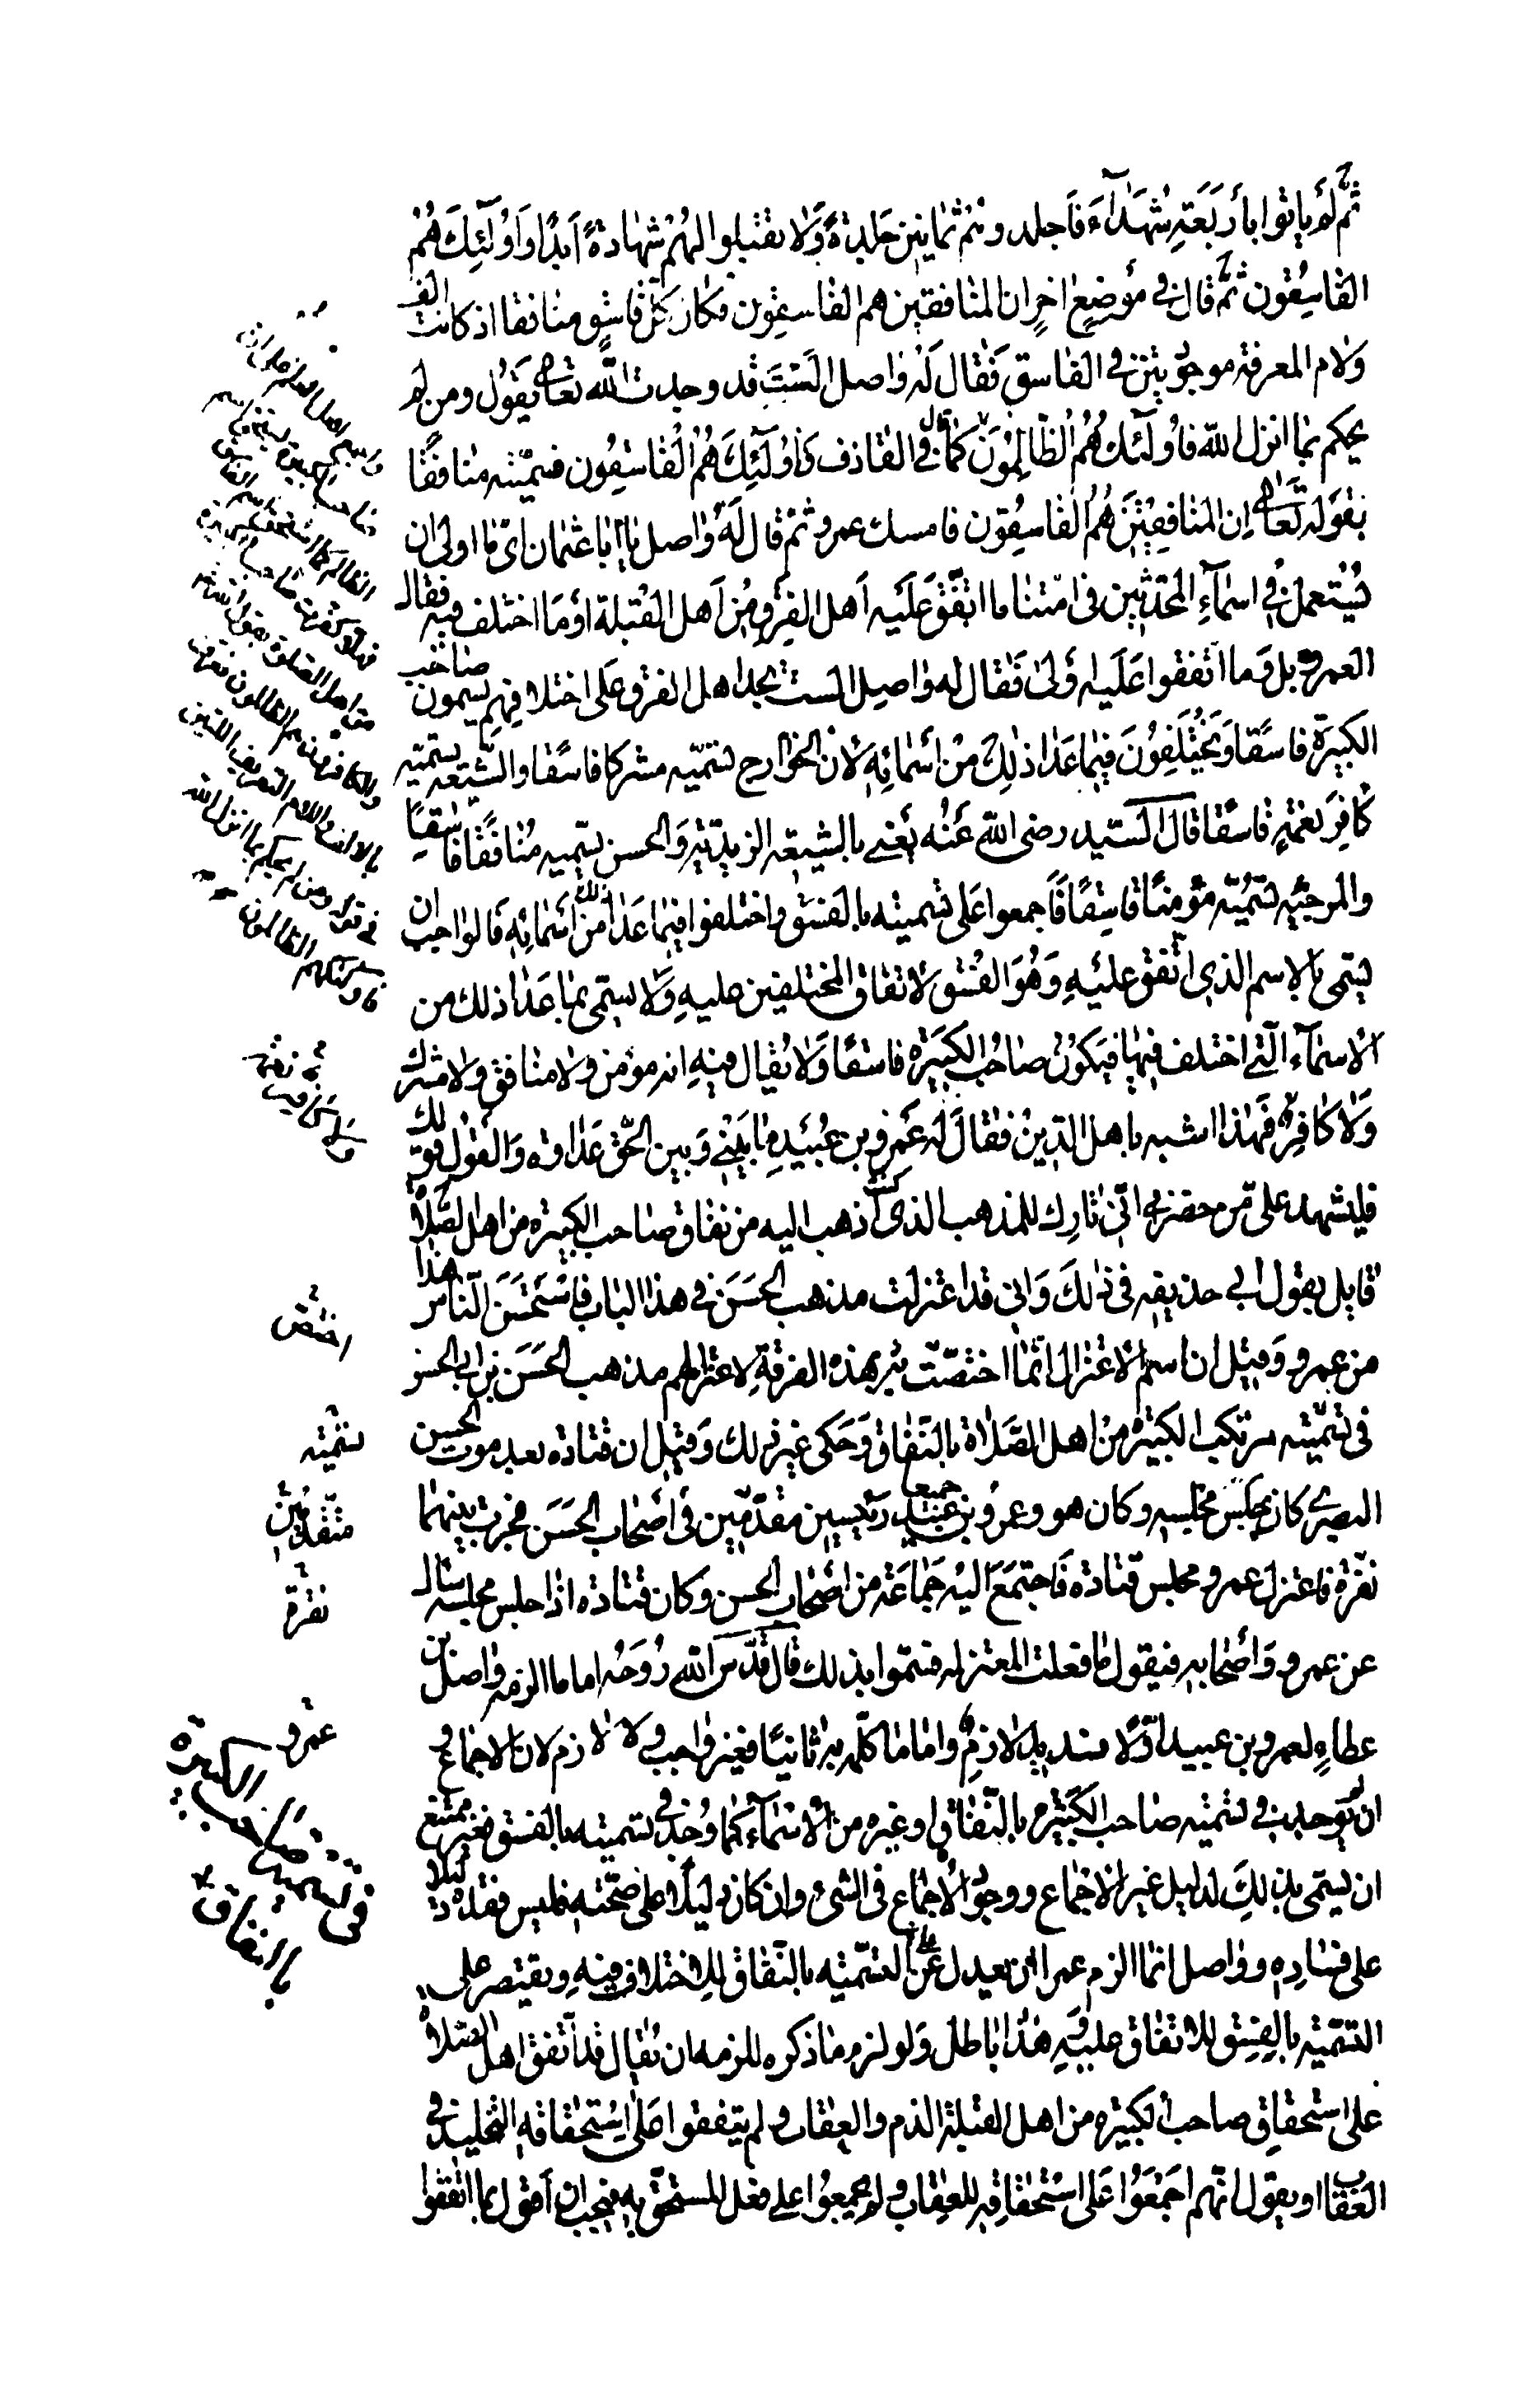 ثم لم ياتوا باربعة شهداء فاجلدوهم ثمانين جلدة ولا تقبلوا لهم شهادة ابدا واولئك هم
الفاسقون ثم قال في موضع اخر ان المنافقين هم الفاسقون فكان كل فاسق منافقا اذ كانت الف
ولام المعرفة موجودتين في الفاسق فقال له واصل الست قد وجدت الله تعالى يقول ومن لم
يحكم بما انزل الله فاولئك هم الظالمون كما قال في القاذف واولئك هم الفاسقون فسميته منافقا
بقوله تعالى ان المنافقين هم الفاسقون فامسك عمرو ثم قال له واصل يا ابا عثمان اي ما اولى ان
يستعمل في اسماء المحدثين في امتنا ما اتفق عليه اهل الفرق من اهل القبلة او ما اختلف فيه فقال
العمرو بل ما اتفقوا عليه اولى فقال له واصل الست تجد اهل الفرق على اختلافهم يسمون صاحب
الكبيرة فاسقا ويختلفون فيما عدا ذلك من اسمائه لان الخوارج تسميه مشركا فاسقا والشيعة تسميه
كافر نعمة فاسقا قال السيد رضي الله عنه يعني بالشيعة الزيدية والحسن يسميه منافقا فاسقا
والمرجئة تسميه مؤمنا فاسقا فاجمعوا على تسميته بالفسق واختلفوا فيما عدا ذلك من اسمائه فالواجب ان
يسمى بالاسم الذي اتفق عليه وهو الفسق لاتفاق المختلفين عليه ولا يسمى بما عدا ذلك من
الاسماء التي اختلف فيها فيكون صاحب الكبيرة فاسقا ولا يقال فيه انه مؤمن ولا منافق ولا مشرك
ولا كافر فهذا اشبه باهل الدين فقال له عمرو بن عبيد ما بيني وبين الحق عداوة والقول قولك
فليشهد علي من حضر اني تارك للمذهب الذي كنت اذهب اليه من نفاق صاحب الكبيرة من اهل الصلاة
قايل بقول ابي حذيفة في ذلك واني قد اعتزلت مذهب الحسن في هذا الباب فاستحسن الناس هذا
من عمرو وقيل ان اسم الاعتزال انما اختصت به هذه الفرقة لاعتزالهم مذهب الحسن بن ابي الحسن
في تسميته مرتكب الكبيرة من اهل الصلاة بالنفاق وحكي غير ذلك وقيل ان قتادة بعد موت الحسن
البصري كان يجلس مجلسه وكان هو وعمرو بن عبيد جميعا رئيسين مقدمين في اصحاب الحسن فجرت بينهما
نفرة فاعتزل عمرو مجلس قتادة فاجتمع اليه جماعة من اصحاب الحسن وكان قتادة اذا جلس مجلسه سال
عن عمرو واصحابه فيقول ما فعلت المعتزلة فسموا بذلك قال قدس الله روحه اما ما الزمه واصل بن
عطاء لعمرو بن عبيد اولا فسديد لازم واما ما كلمه به ثانيا فغير واجب ولا لازم لان الاجماع و
ان لم يوجد في تسميته صاحب الكبيرة بالنفاق او غيره من الاسماء كما وجد في تسميته بالفسق فغير ممتنع
ان يسمى بذلك لدليل غير الاجماع ووجود الاجماع في الشئ وان كان دليلا على صحته فليس فقده دليلا
على فساده وواصل انما الزم عمرا ان يعدل عن التسمية بالنفاق للاختلاف فيه ويقتصر على
التسمية بالفسق للاتفاق عليه وهذا باطل ولو لزم ما ذكره للزمه ان يقال قد اتفق اهل الصلاة
على استحقاق صاحب الكبيرة من اهل القبلة الذم والعقاب ولم يتفقوا على استحقاقه التخليد في
العقاب او يقول انهم اجمعوا على استحقاقه للعقاب ولم يجمعوا على فعل المستحق به فيجب ان اقول بما اتفقوا
اختص
تسميته
متقدمين
نفرة
عمرو
في تسمية صاحب الكبيرة
بالنفاق